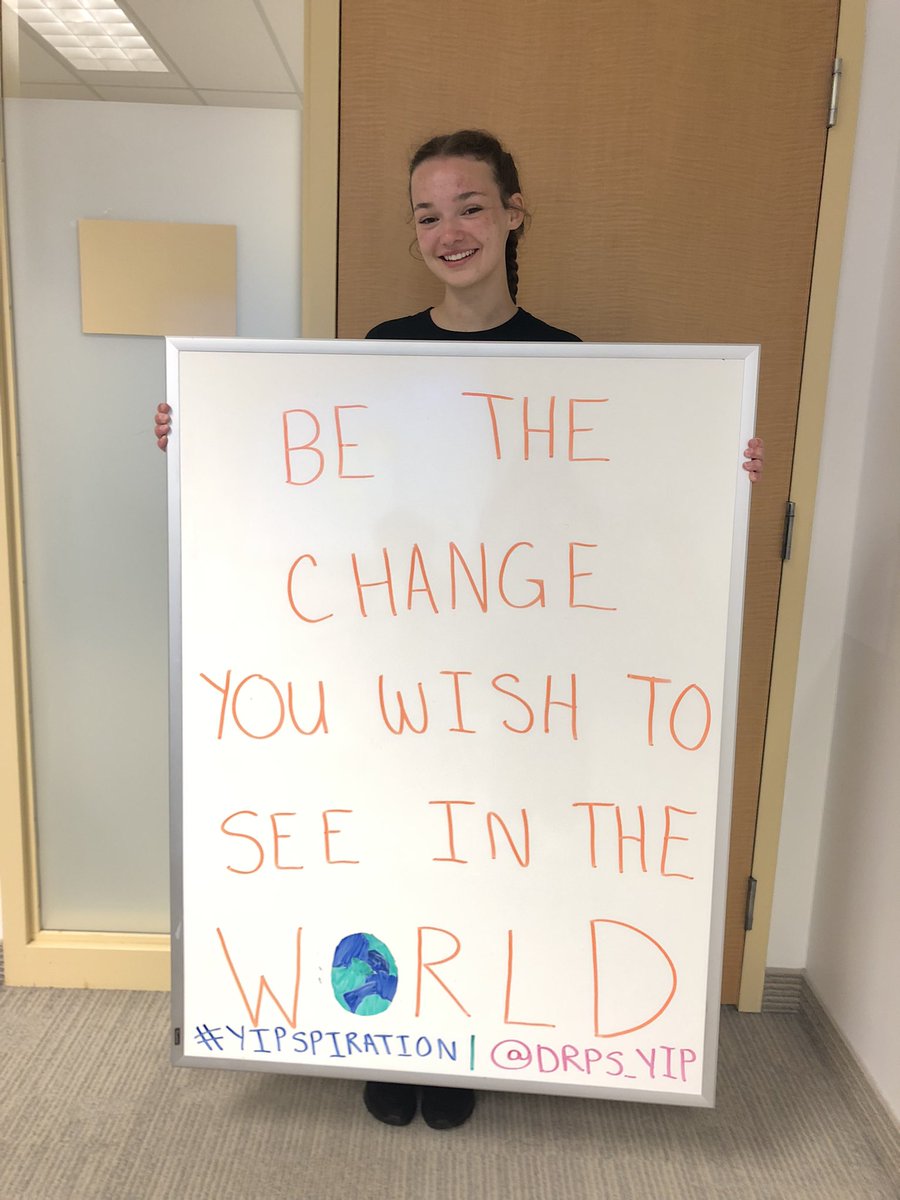 BE THE
CHANGE
YOU WISH TO
SEE IN THE
WORLD
#YIPSPIRATION | @DRPS_YIP